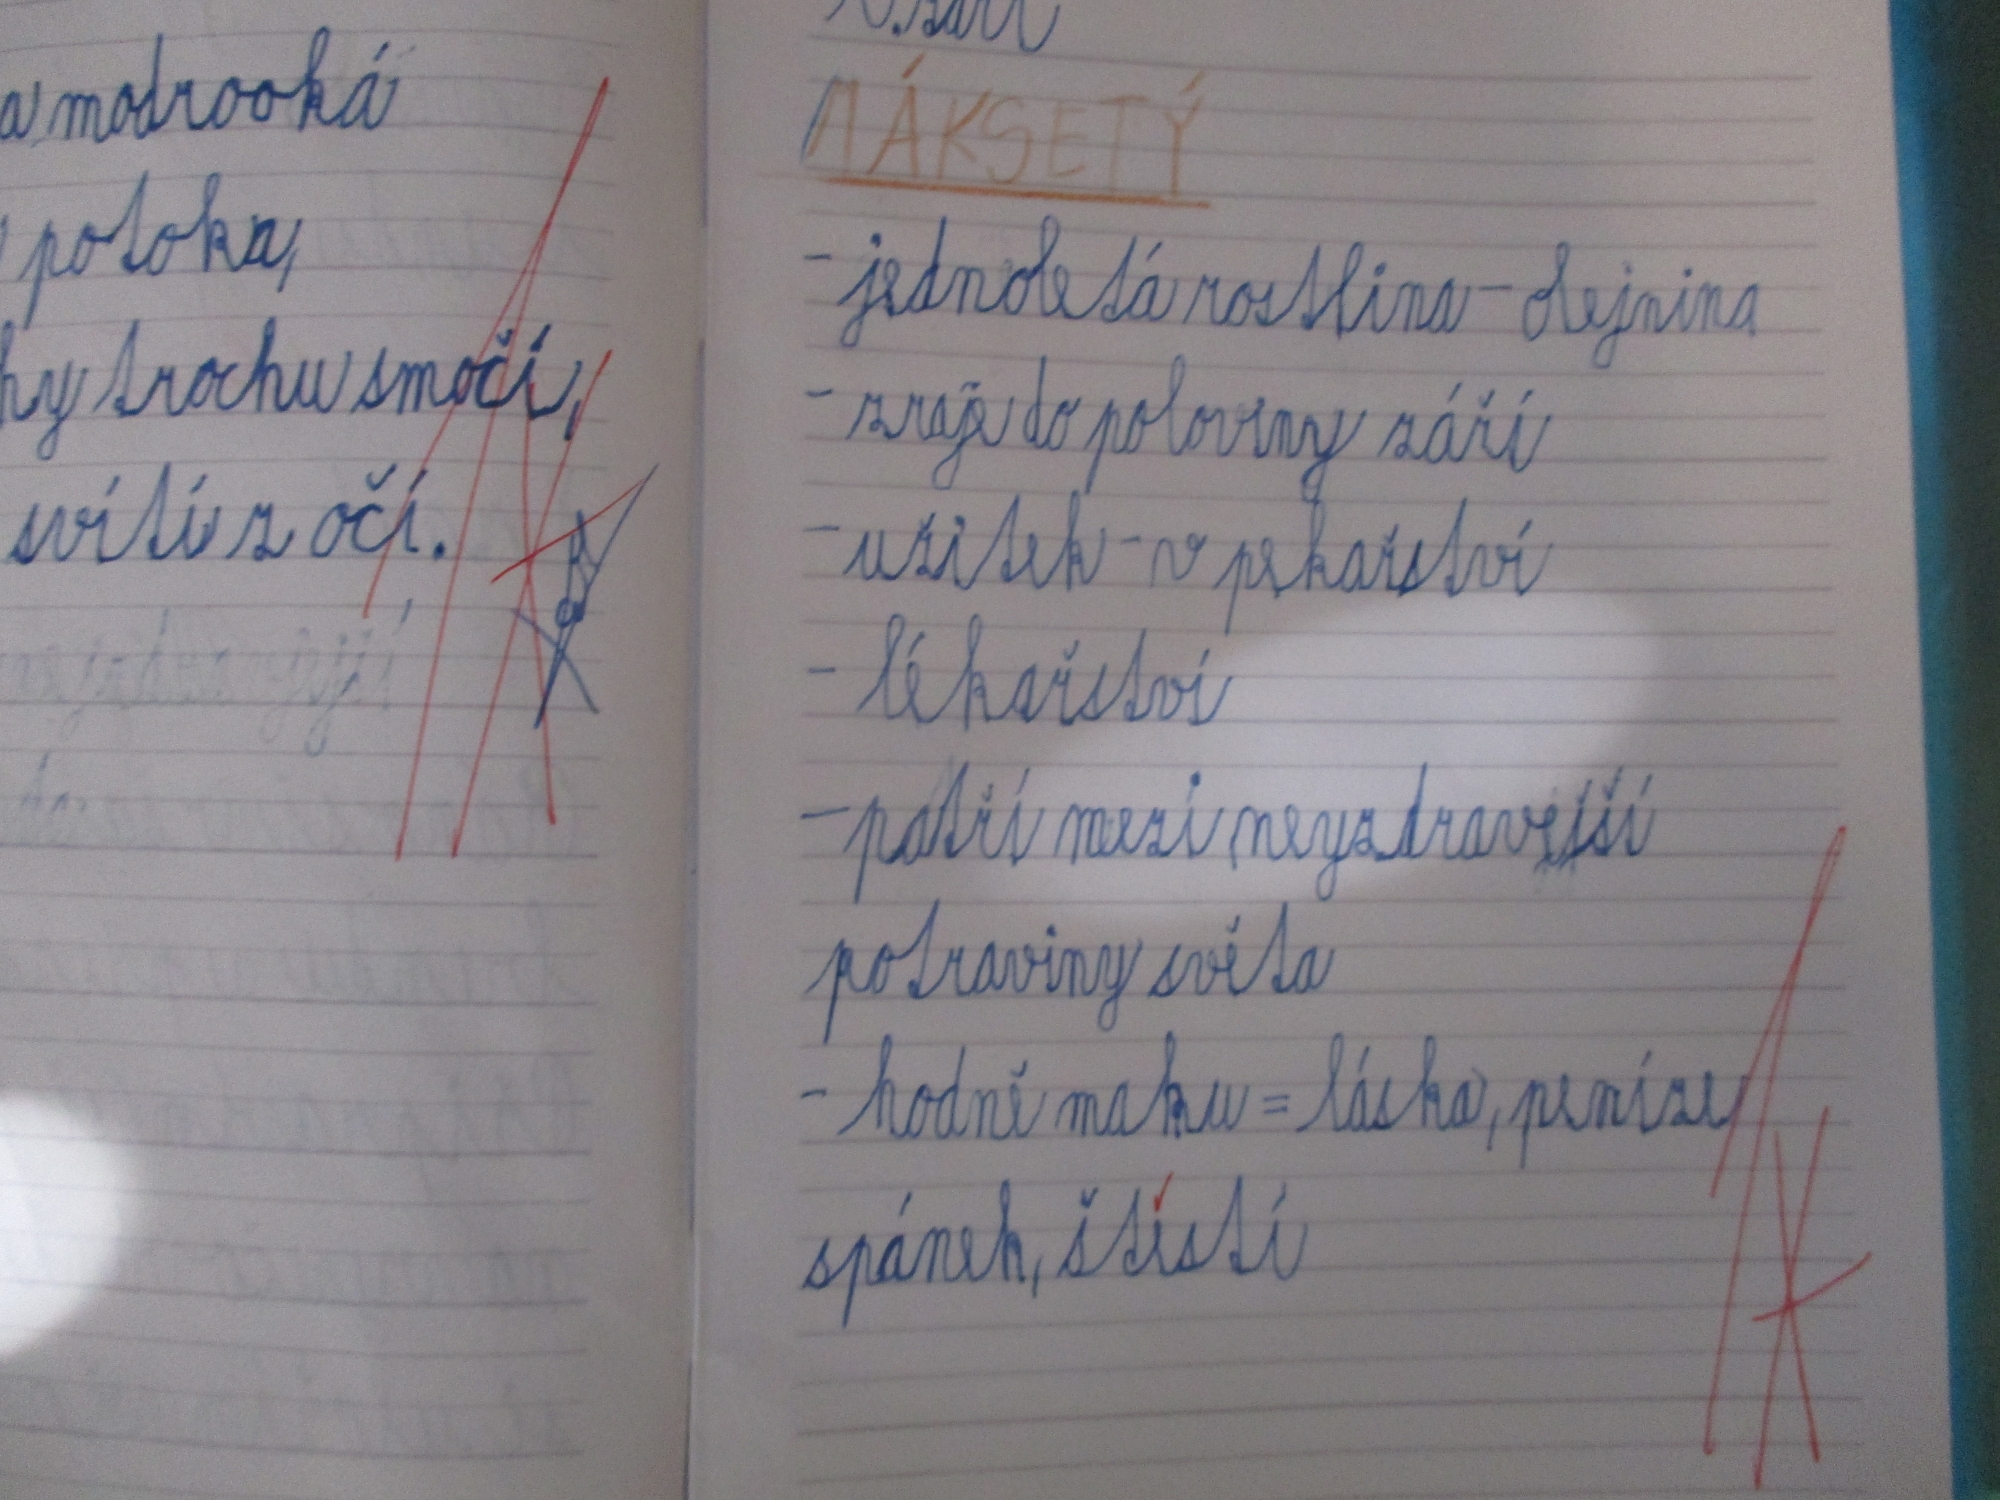 a modrooká
potoka,
hy trochu smočí,
svítí z očí.
září
MÁK SETÝ
- jednoletá rostlina - olejnina
- zraje do poloviny září
- užitek - v pekařství
- lékařství
- patří mezi neyzdravější
potraviny světa
- hodně maku = láska, peníze
spánek, štístí